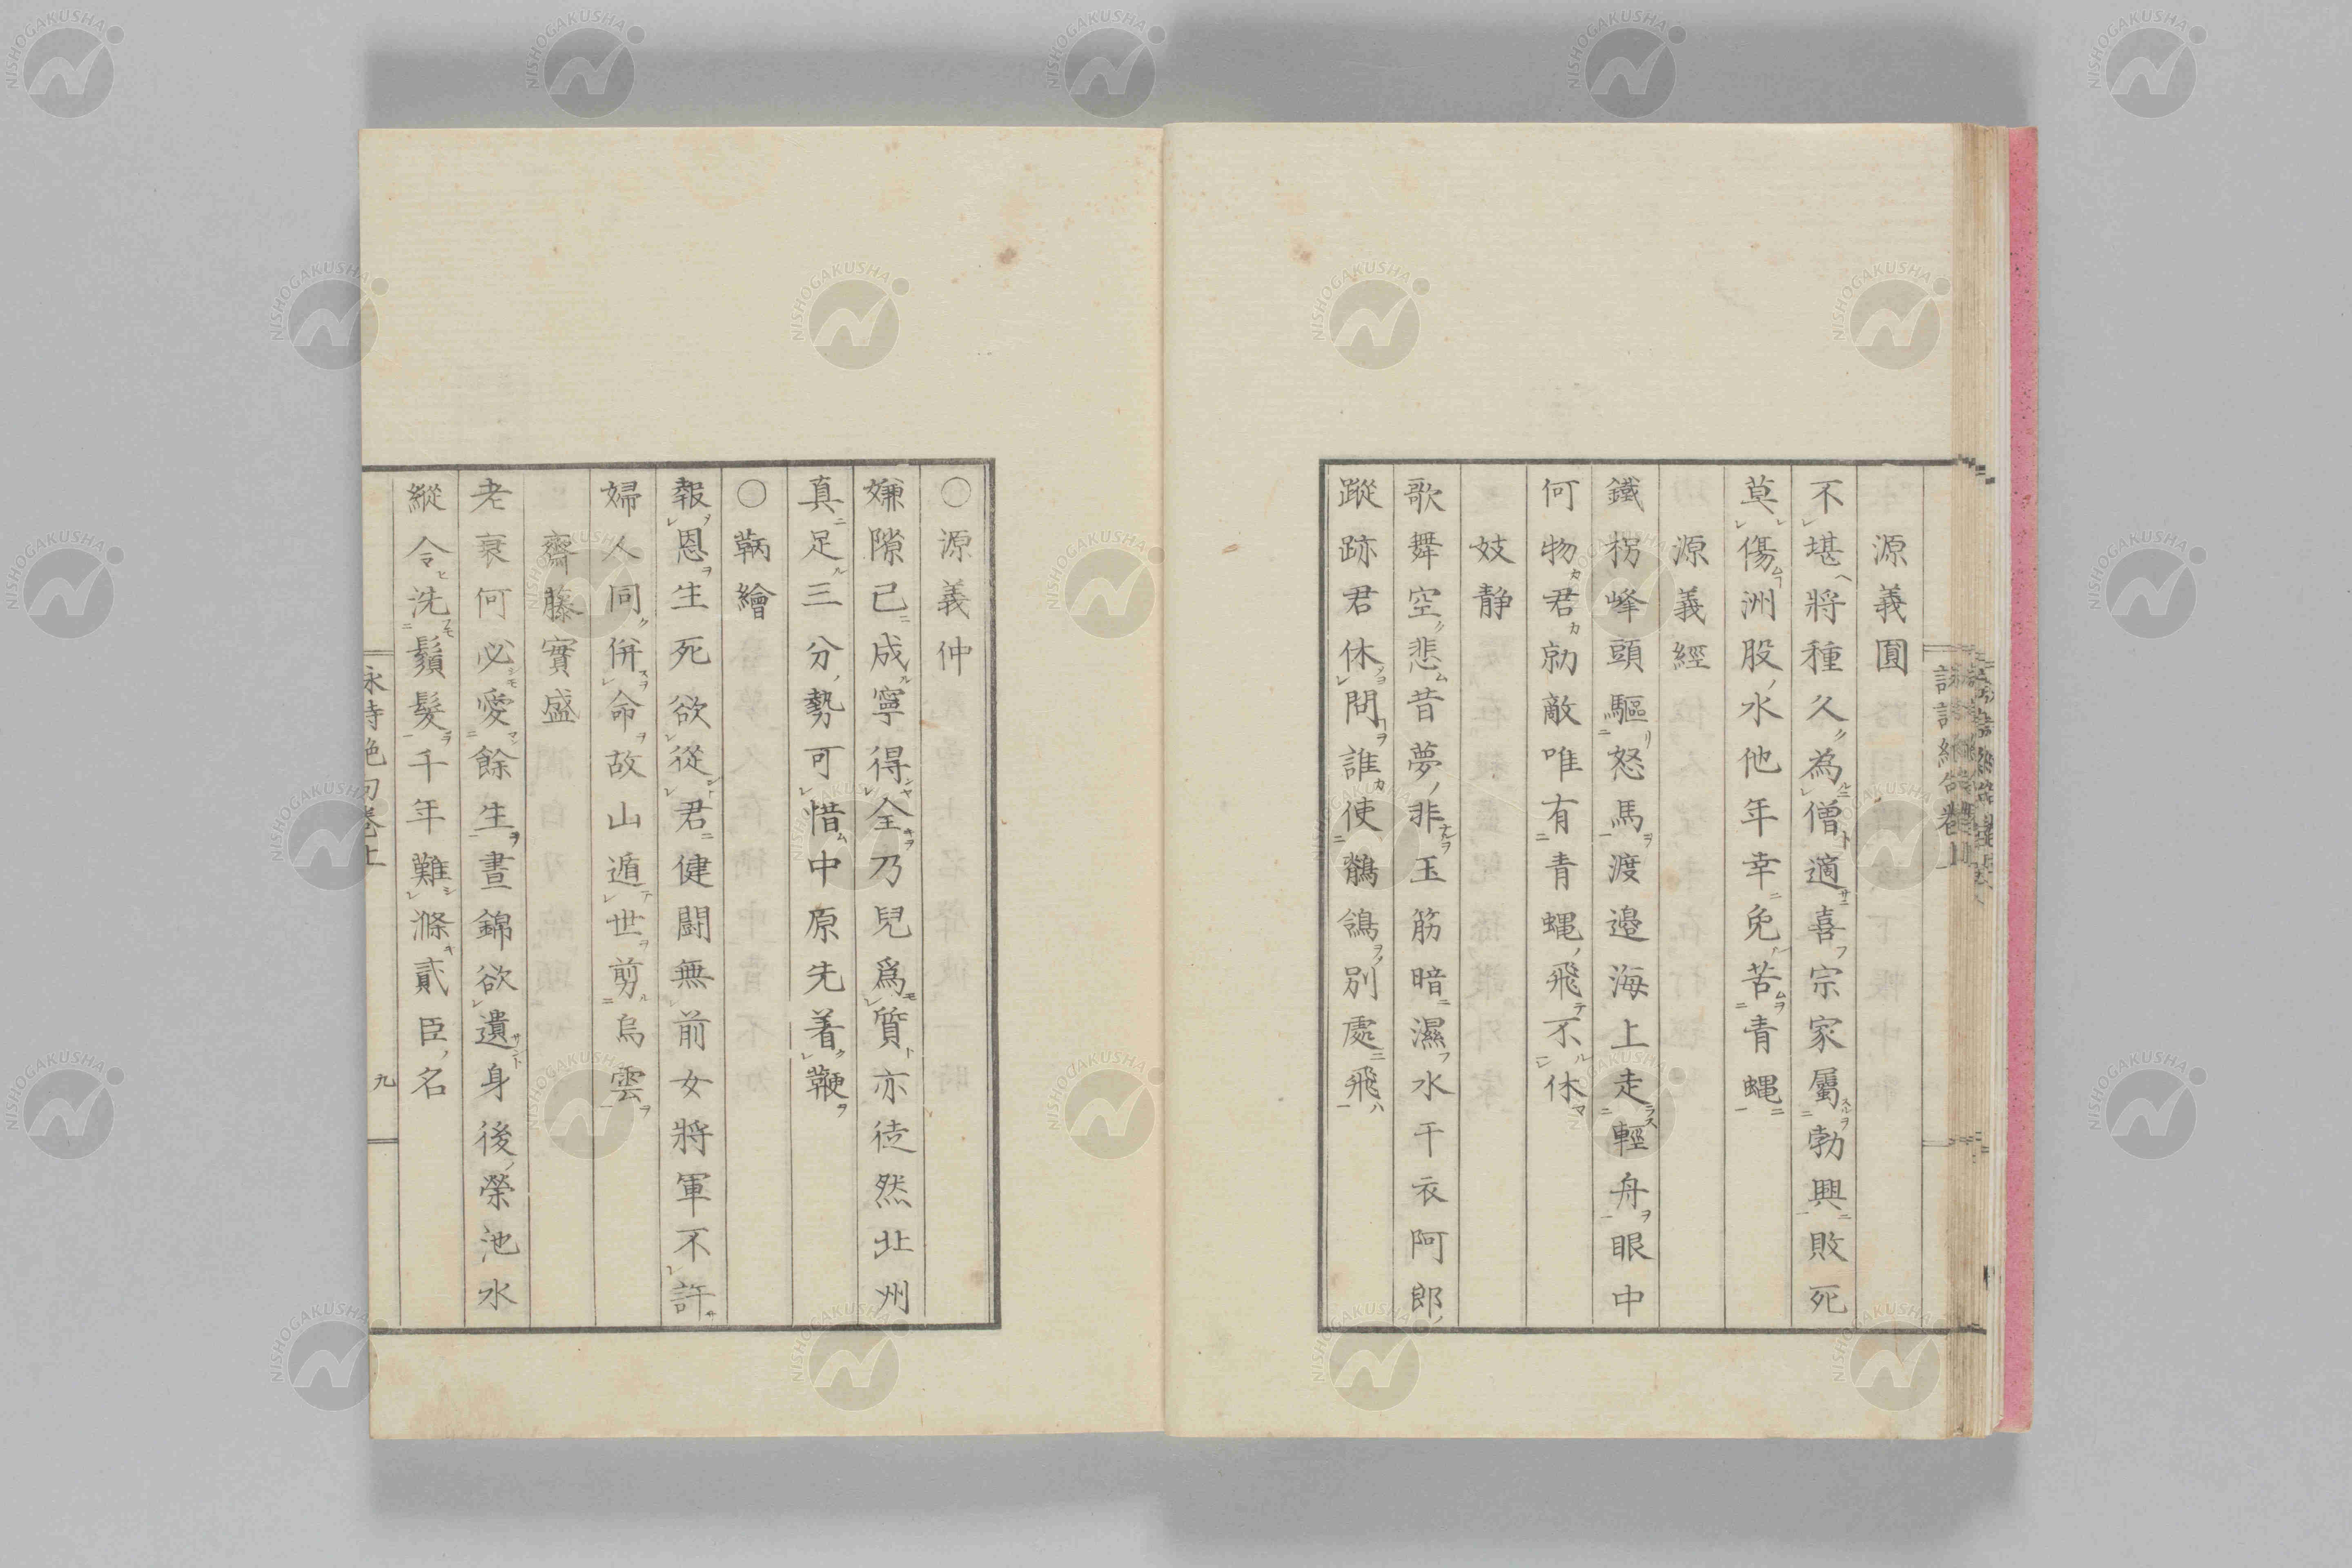 源義圓
不堪將種久為僧適喜宗家屬勃興敗死
莫傷洲股水他年幸免苦青蝿
源義經
鐵拐峰頭驅怒馬渡邉海上走輕舟眼中
何物君勍敵唯有青蝿飛不休
妓静
歌舞空悲昔夢非玉筋暗濕水干衣阿郎
蹤跡君休問誰使鶺鴒別處飛
〇源義仲
嫌隙已成寧得全乃兒爲質亦徒然北州
真足三分勢可惜中原先着鞭
〇鞆繪
報恩生死欲從君健闘無前女將軍不許
婦人同併命故山遁世剪烏雲
齋藤實盛
老衰何必愛餘生晝錦欲遺身後榮池水
縱令洗鬚髮千年難滌貳臣名
詠詩絶句卷上
九
NISHOGAKUSHA